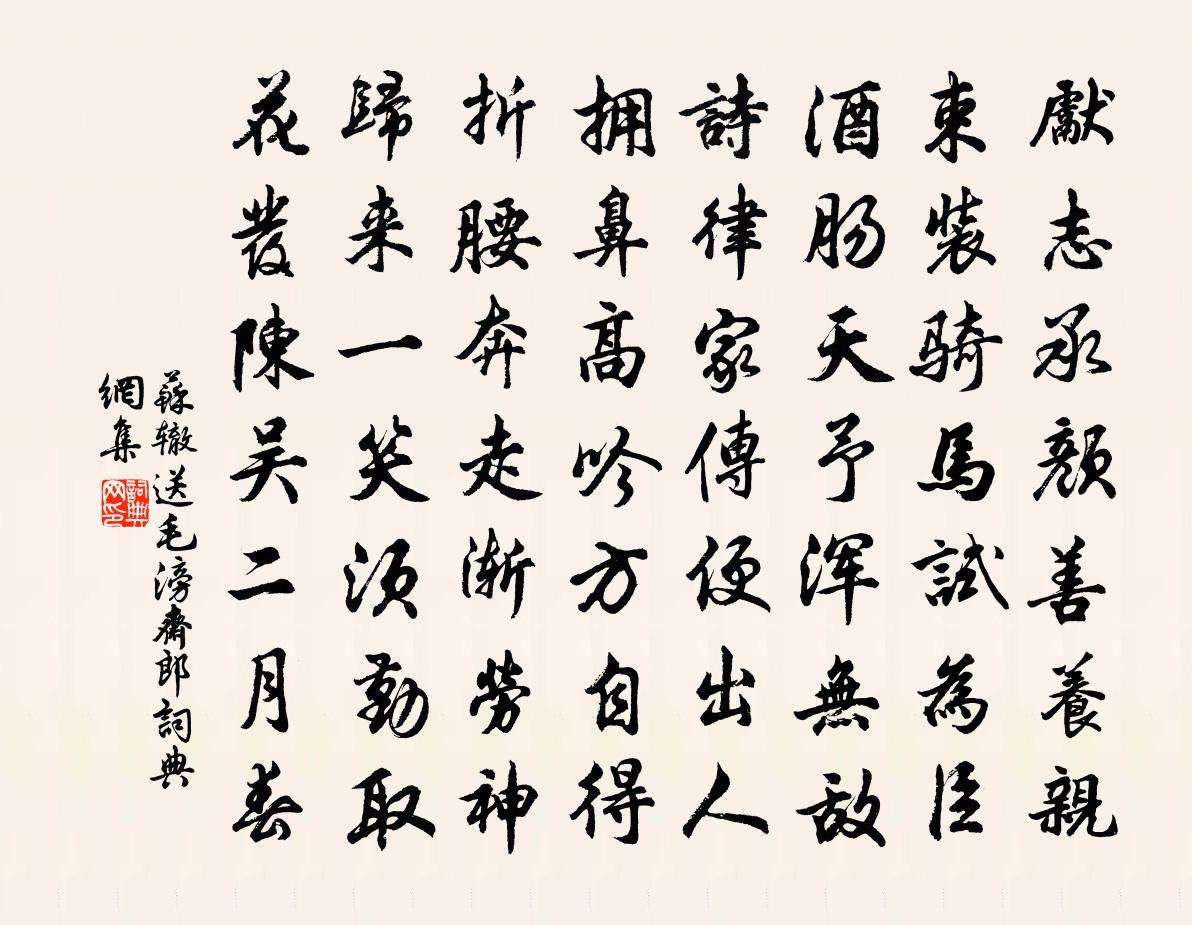 獻志承顏善養親
束裝騎馬試為臣
酒肠天予渾無敌
詩律家傳便出人
拥鼻高吟方自得
折腰奔走漸勞神
歸来一笑須勤取
花發陳吴二月春
蘇辙送毛滂齋郎詞典
網集
詞典
网印